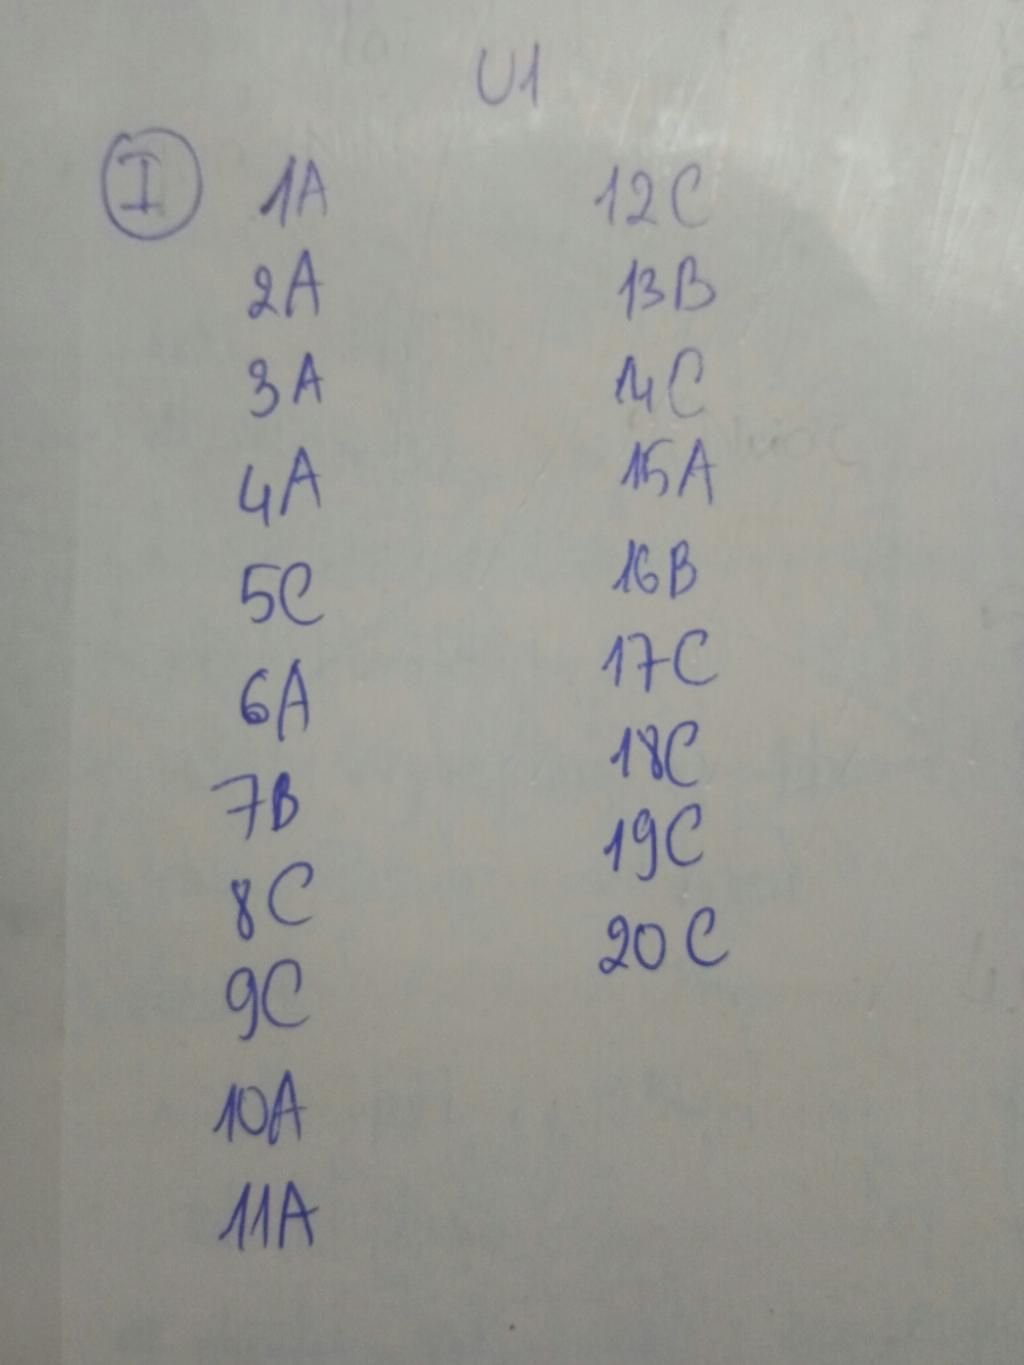 U1
I
1A
2A
3A
4A
5C
6A
7B
8C
9C
10A
11A
12C
13B
14C
15A
16B
17C
18C
19C
20C